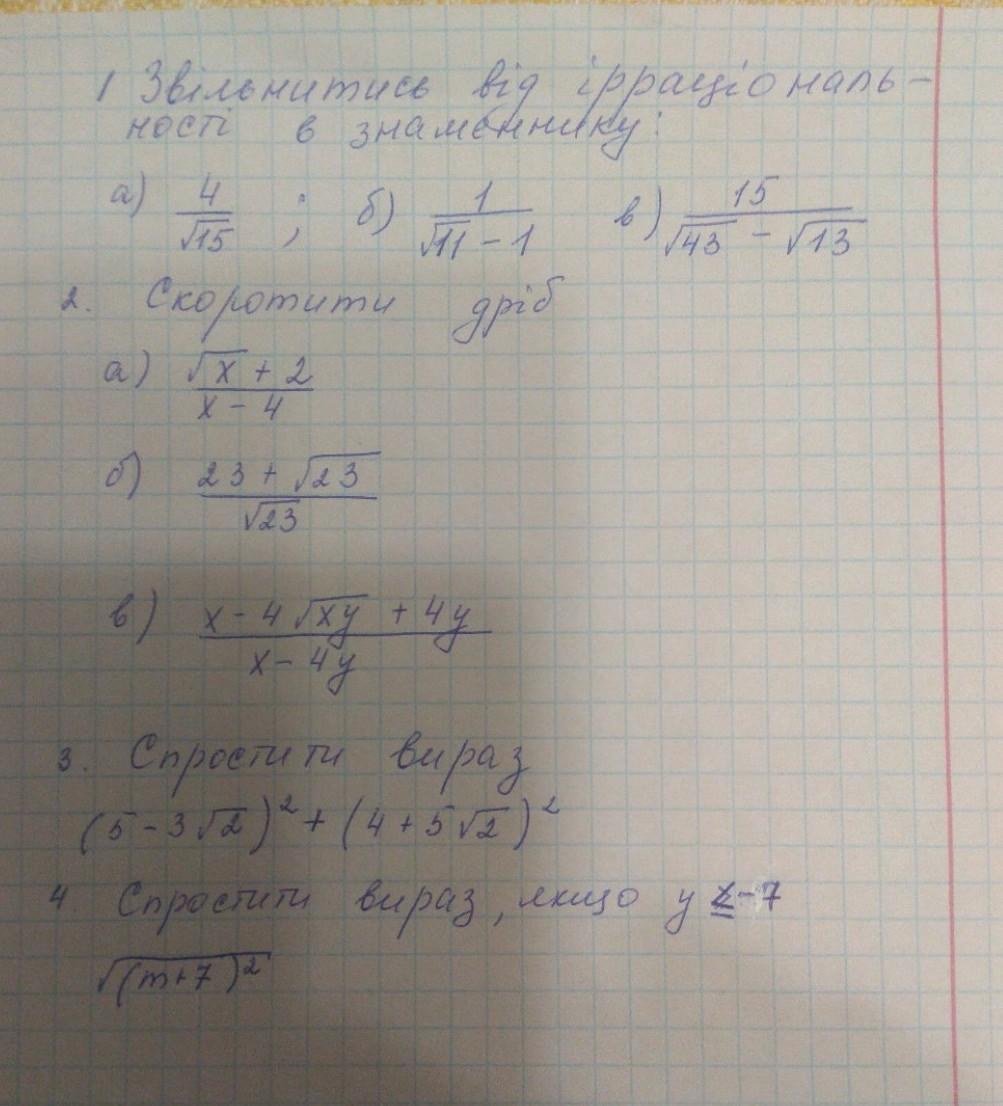 1 Звільнитись від ірраціональ-
ності в знаменнику:
а) 4/√15 ; б) 1/(√11 - 1) в) 15/(√43 - √13)
2. Скоротити дріб
а) (√x + 2)/(x - 4)
б) (23 + √23)/√23
в) (x - 4√xy + 4y)/(x - 4y)
3. Спростити вираз
(5 - 3√2)² + (4 + 5√2)²
4 Спростити вираз, якщо y ≤ -7
√(m+7)²